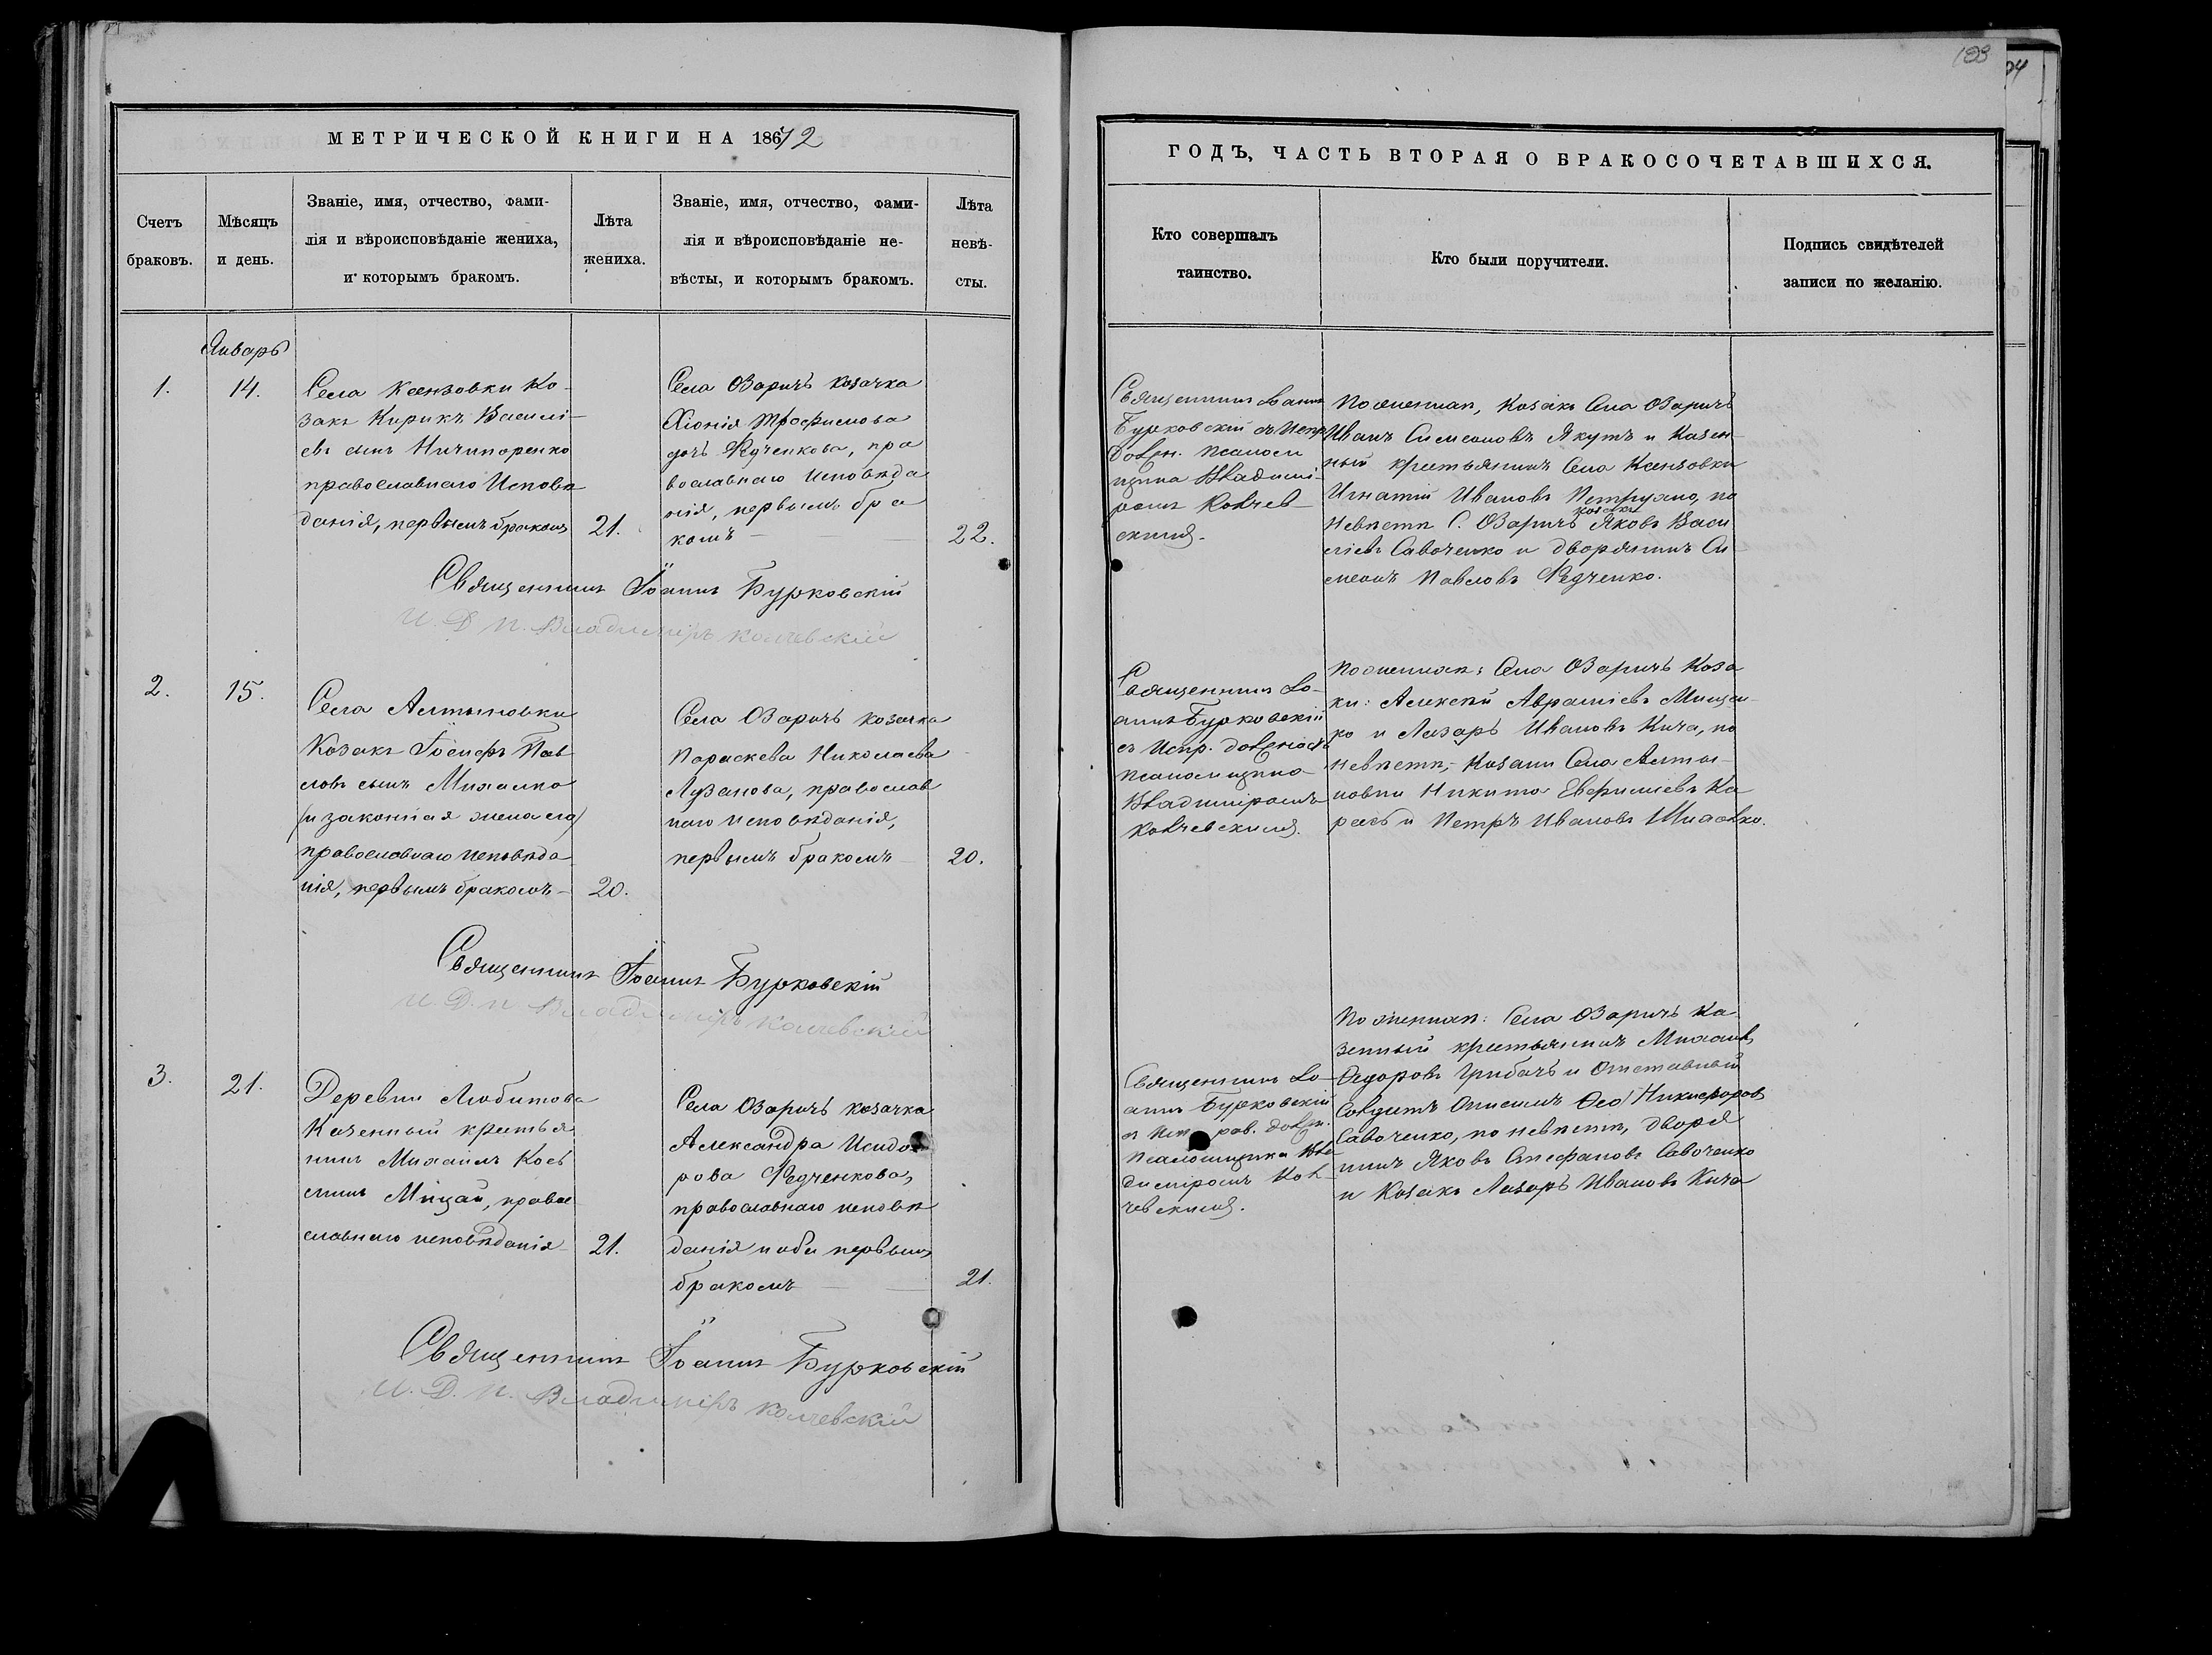 183
МЕТРИЧЕСКОЙ КНИГИ НА 18672
ГОДЪ, ЧАСТЬ ВТОРАЯ О БРАКОСОЧЕТАВШИХСЯ.
Счетъ
браковъ.
Мѣсяцъ
и день.
Званіе, имя, отчество, фами-
лія и вѣроисповѣданіе жениха,
и которымъ бракомъ.
Лѣта
жениха.
Званіе, имя, отчество, фами-
лія и вѣроисповѣданіе не-
вѣсты, и которымъ бракомъ.
Лѣта
невѣ-
сты.
Кто совершалъ
таинство.
Кто были поручители.
Подпись свидѣтелей
записи по желанію.
Январь
1.
14.
Села Ксензовки Ко-
закъ Кирикъ Василі-
евъ сынъ Ничипоренко
православнаго Исповѣ
данія, первымъ бракомъ
21.
Села Озаричъ козачка
Хіонія Трофимова
дочъ Федченкова, пра
вославнаго Исповѣда
нія, первымъ бра
комъ
22.
Священникъ Іоаннъ
Бурковскій съ Испр.
должн. псалом
щика Владими-
ромъ Колчев-
скимъ.
По женихѣ, Козакъ Села Озаричъ
Иванъ Симеоновъ Якутъ и Казен-
ный крестьянинъ Села Ксензовки
Игнатій Ивановъ Петрухно, по
невѣстѣ С. Озаричъ козакъ Яковъ Васи
ліевъ Савоченко и дворянинъ Си-
меонъ Павловъ Федченко.
Священникъ Іоаннъ Бурковскій
И. Д. П. Владиміръ Колчевскій
2.
15.
Села Алтыновки
Козакъ Іосифъ Пав-
ловъ сынъ Михалко
(и законная жена его)
православнаго исповѣда
нія, первымъ бракомъ
20.
Села Озаричъ козачка
Параскева Николаева
Лузанова, православ
наго исповѣданія,
первымъ бракомъ
20.
Священникъ Іо-
аннъ Бурковскій
съ Испр. должность
псаломщика
Владиміромъ
Колчевскимъ.
По женихѣ: Села Озаричъ Коза
ки: Алексѣй Авраміевъ Мищен-
ко и Лазаръ Ивановъ Кича, по
невѣстѣ, Козаки Села Алты-
новки Никита Евфиміевъ Ка
рась и Петръ Ивановъ
Священникъ Іоаннъ Бурковскій
И. Д. П. Владиміръ Колчевскій
3.
21.
Деревни Любитова
Казенный крестья
нинъ Михаилъ Косъ
минъ Мицай, право
славнаго исповѣданія
21.
Села Озаричъ козачка
Александра Исидо
рова Федченкова,
православнаго исповѣ
данія и оба первымъ
бракомъ
21.
Священникъ Іо-
аннъ Бурковскій
съ Исправ. должн.
псаломщика Вла
диміромъ Кол-
чевскимъ.
По женихѣ: Села Озаричъ Ка
зенный крестьянинъ Михаилъ
Федоровъ Грибачъ и Отставный
Солдатъ Онисимъ Никифоровъ
Савоченко, по невѣстѣ, дворя
нинъ Яковъ Стефановъ Савоченко
и Козакъ Лазаръ Ивановъ Кича
Священникъ Іоаннъ Бурковскій
И. Д. П. Владиміръ Колчевскій